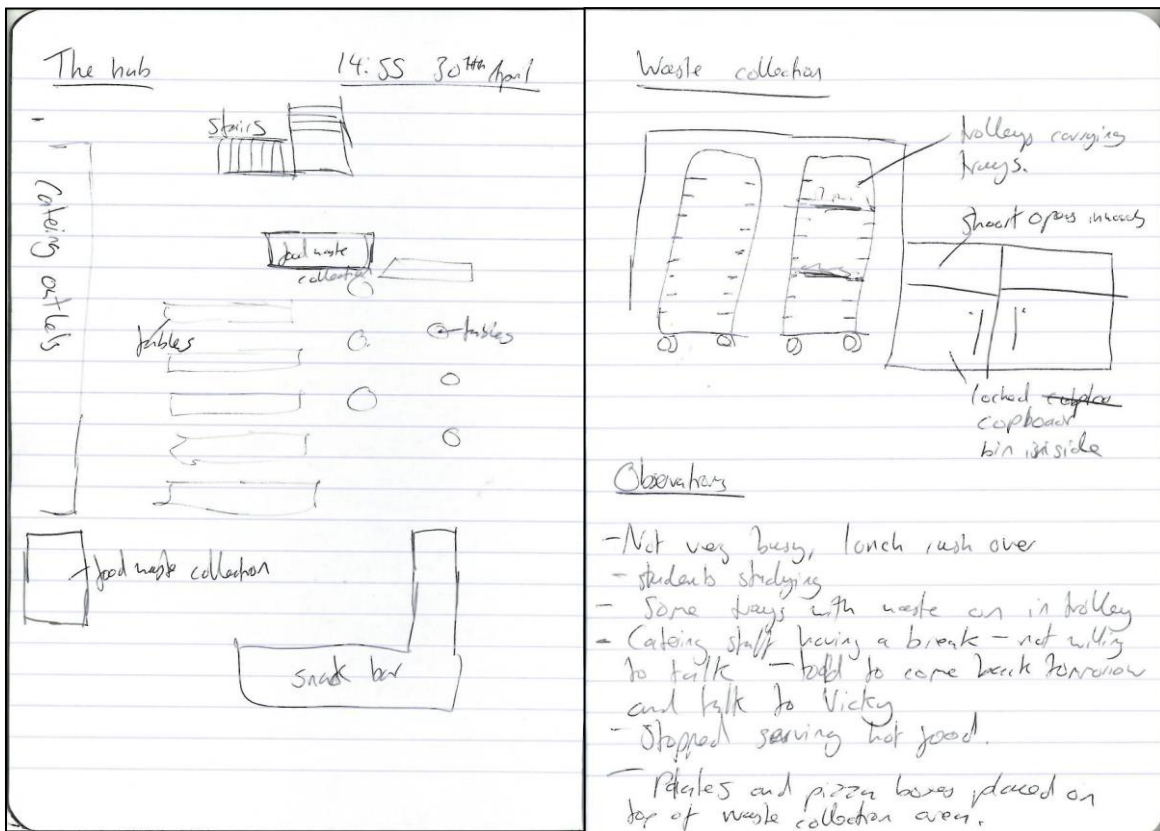 The hub
14:55 30th April
stairs
Cateing outlets
food waste
collection
tables
tables
food waste collection
snack bar
Waste collection
trolleys carrying
trays.
opens inwards
locked
copboard
bin inside
Observations
- Not very busy, lunch rush over
- students studying
- Some trays with waste on in trolley
- Cateing staff having a break - not willing
to talk - told to come back tomorrow
and talk to Vicky
- Stopped serving hot food.
- Plates and pizza boxes placed on
top of waste collection area.